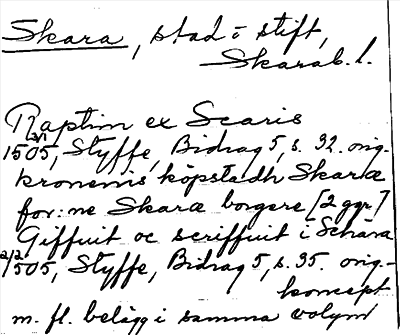 Skara, stad i stift,
Skarab. l.
Raptim ex Scaris
3/1
1505, Styffe, Bidrag 5, s. 32. orig.
kronenis köpstadh Skaræ
for:ne Skaræ borgere [2 ggr.]
Giffuit oc scriffuit i Schara
2/2
1505, Styffe, Bidrag 5, s. 35. orig.-
koncept
m. fl. belägg i samma volym